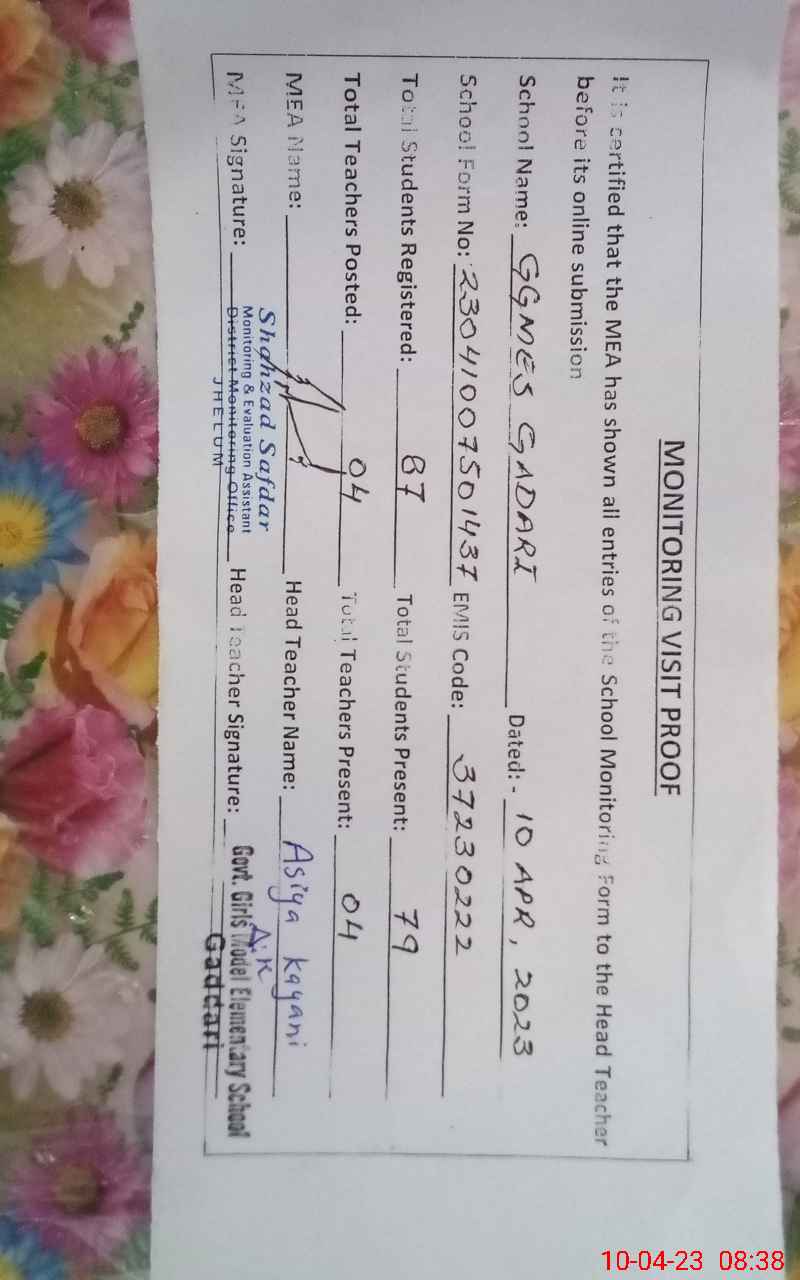 MONITORING VISIT PROOF
It is certified that the MEA has shown all entries of the School Monitoring Form to the Head Teacher
before its online submission
School Name: GGMES GADARI Dated: - 10 APR, 2023
School Form No: 23041007501437 EMIS Code: 37230222
Total Students Registered: 87 Total Students Present: 79
Total Teachers Posted: 04 Total Teachers Present: 04
MEA Name: Head Teacher Name: Asiya kayani
MEA Signature: Shahzad Safdar Head Teacher Signature: A.K
Monitoring & Evaluation Assistant
District Monitoring Office
JHELUM
Govt. Girls Model Elementary School
Gaddari
10-04-23 08:38